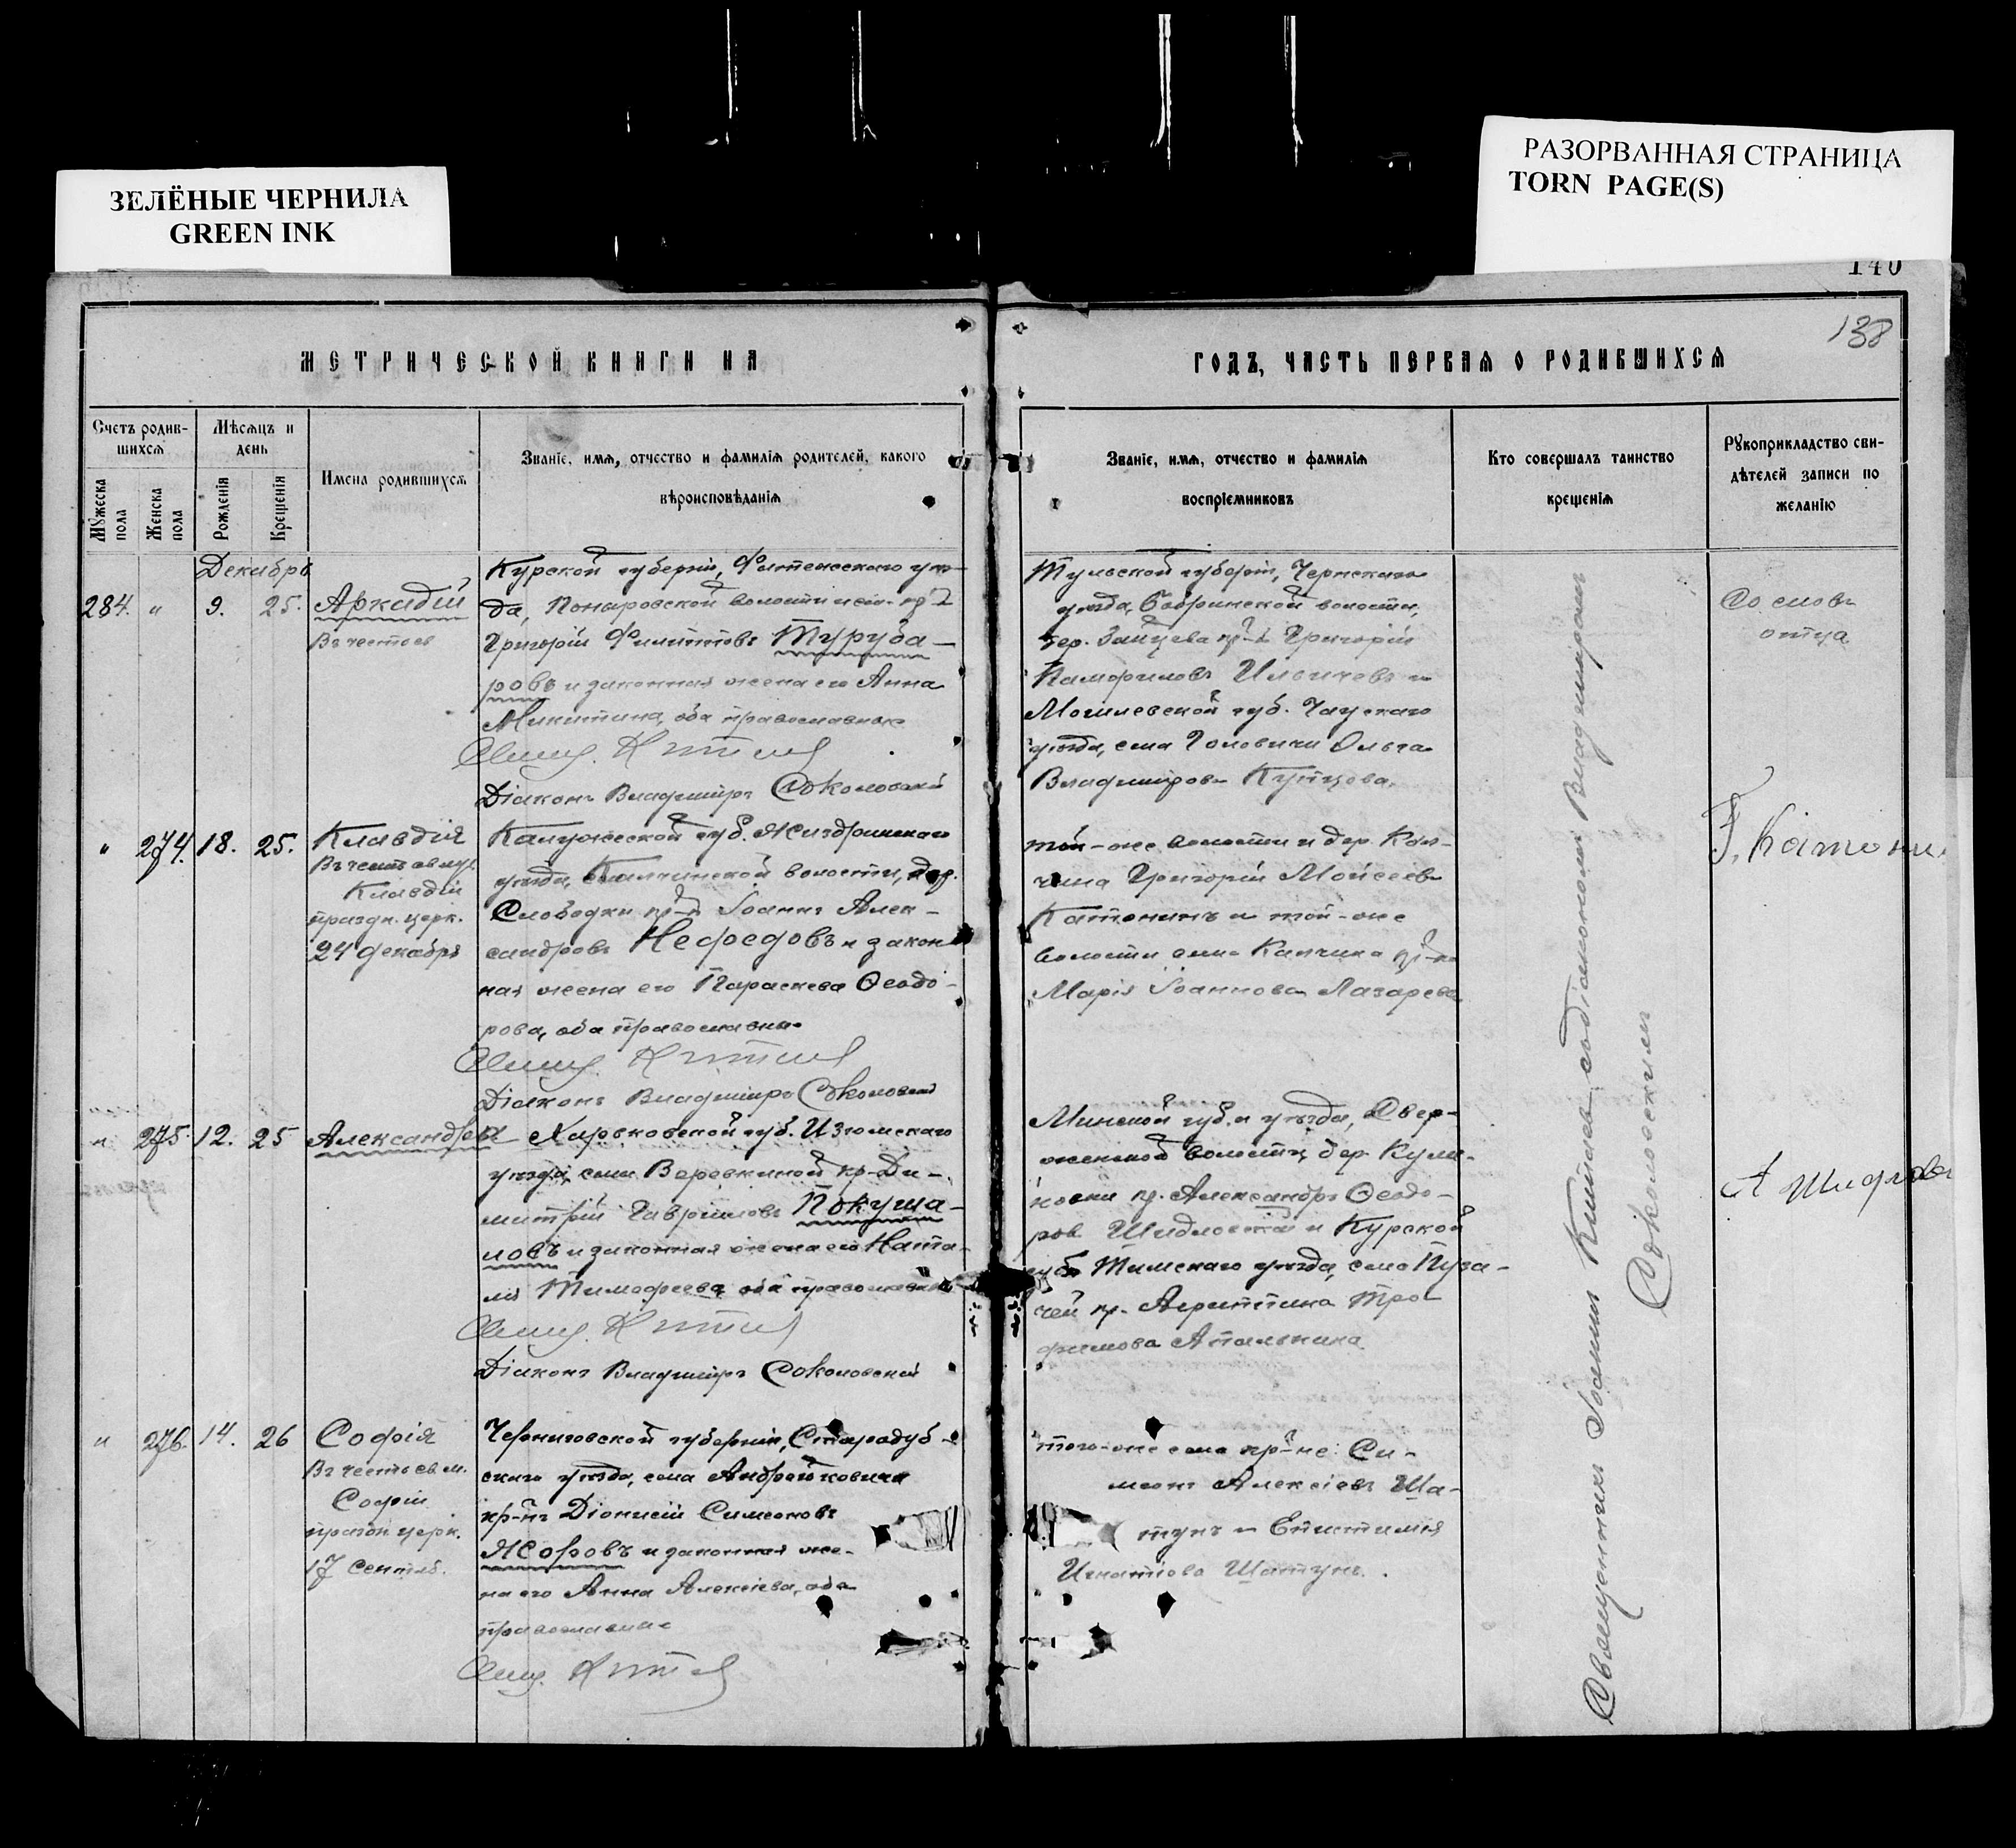 ЗЕЛЁНЫЕ ЧЕРНИЛА
GREEN INK
РАЗОРВАННАЯ СТРАНИЦА
TORN PAGE(S)
140
138
МЕТРИЧЕСКОЙ КНИГИ НА
ГОДЪ, ЧАСТЬ ПЕРВАЯ О РОДИВШИХСЯ
Счетъ родив-
шихся
Мѣсяцъ и
день
Мужеска
пола
Женска
пола
Рожденія
Крещенія
Имена родившихся
Званіе, имя, отчество и фамилія родителей, какого
вѣроисповѣданія
Званіе, имя, отчество и фамилія
воспріемниковъ
Кто совершалъ таинство
крещенія
Рукоприкладство сви-
дѣтелей записи по
желанію
Декабрь
284. " 9. 25. Аркадій
Въ честь св
Курской губерніи, уѣз-
да, волости кр-нъ
Григорій Филипповъ Туруба-
ровъ и законная жена его Анна
Никитина, оба православные
Свящ. Китаев
Діаконъ Владиміръ Соколовскій
Тульской губерніи, Чернскаго
уѣзда, Бобринской волости,
дер. Зайцева кр-нъ Григорій
Памфиловъ Ильичевъ и
Могилевской губ. Чаускаго
уѣзда, села Головичи Ольга
Владимірова Купцова.
Со словъ
отца
" 274. 18. 25. Клавдія
Въ честь св. муч.
Клавдіи
праздн. церк.
24 декабря
Калужской губ. Жиздринскаго
уѣзда, волости, дер.
Слободки кр-нъ Іоаннъ Алек-
сандровъ Нефедовъ и закон-
ная жена его Параскева Ѳеодо-
рова, оба православные
Свящ. Китаев
Діаконъ Владиміръ Соколовскій
той-же волости и дер. Кол-
чина Григорій Мойсеевъ
Катонинъ и той-же
волости села Колчина кр-ка
Марія Іоаннова Лазарева
Г. Катонин
" 275. 12. 25 Александра
Харьковской губ. Изюмскаго
уѣзда, села Веревкиной кр. Ди-
митрій Гавриловъ Покуша-
ловъ и законная жена его Ната-
лія Тимофеева оба православные
Свящ. Китаев
Діаконъ Владиміръ Соколовскій
Минской губ. и уѣзда,
волости, дер.
кр. Александръ Ѳеодо-
ров Шидловскій и Курской
губ. Тимскаго уѣзда, села Пуза-
чей кр. Агриппина Тро-
фимова Апалькина
" 276. 14. 26 Софія
Въ честь св. м.
Софіи
празд. церк.
17 Сентяб.
Черниговской губерніи, Стародуб-
скаго уѣзда, села Андрейковичи
кр-нъ Діонисій Симеоновъ
и законная же-
на его Анна Алексіева, оба
православные
Свящ. Китаев
того-же села кр-не: Си-
меонъ Алексіевъ Ша-
тунъ и Епистимія
Игнатіева Шатунъ.
Священникъ Іоаннъ Китаевъ съ діакономъ Владиміромъ
Соколовскимъ